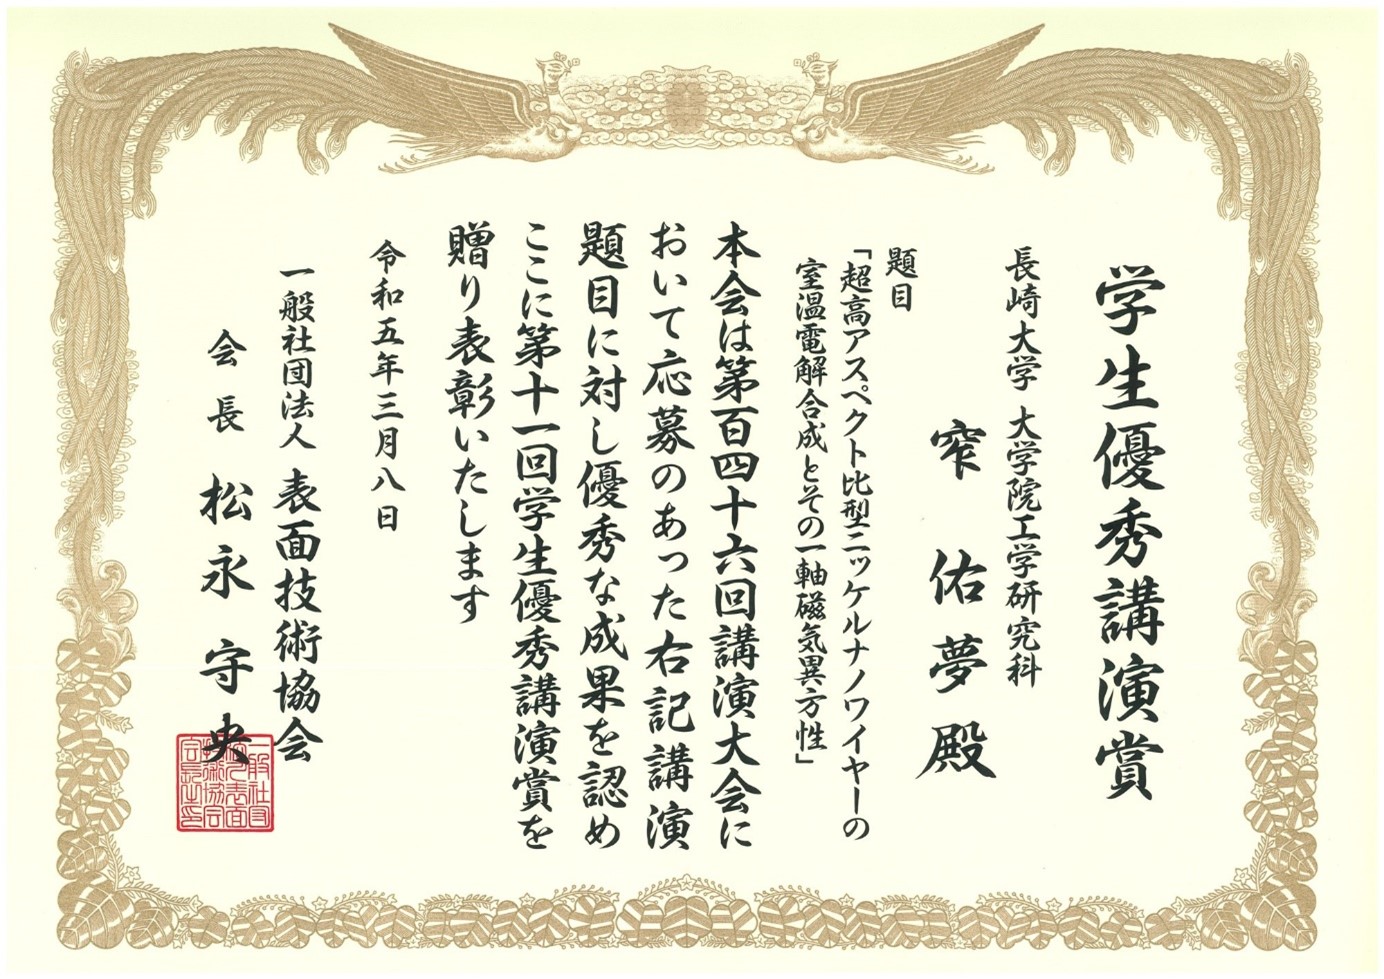 学生優秀講演賞
長崎大学 大学院工学研究科
窄 佑夢 殿
題目
「超高アスペクト比型ニッケルナノワイヤーの
室温電解合成とその一軸磁気異方性」
本会は第百四十六回講演大会に
おいて応募のあった右記講演
題目に対し優秀な成果を認め
ここに第十一回学生優秀講演賞を
贈り表彰いたします
令和五年三月八日
一般社団法人 表面技術協会
会長 松永守央
一般社団
法人表面
技術協会
会長之印